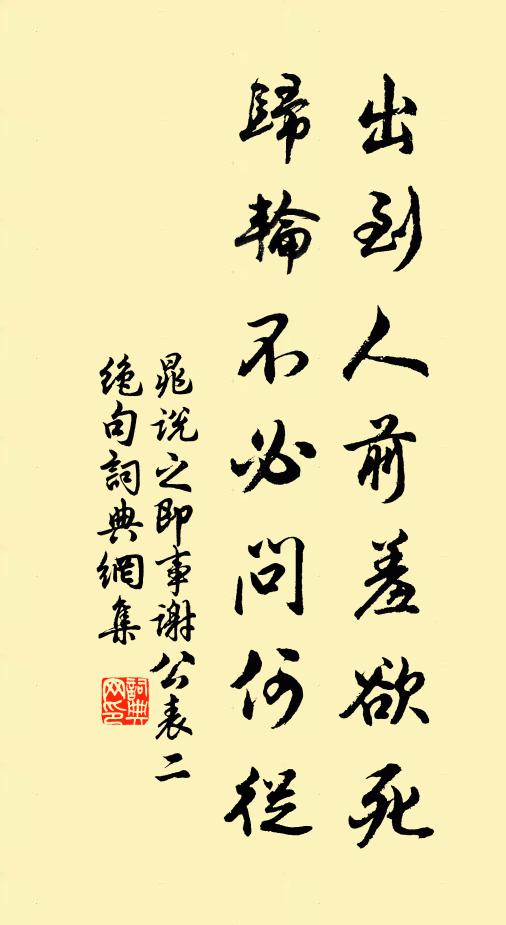 出到人前羞欲死
歸輪不必問何從
晁說之即事謝公表二
絕句詞典網集
詞典
网印